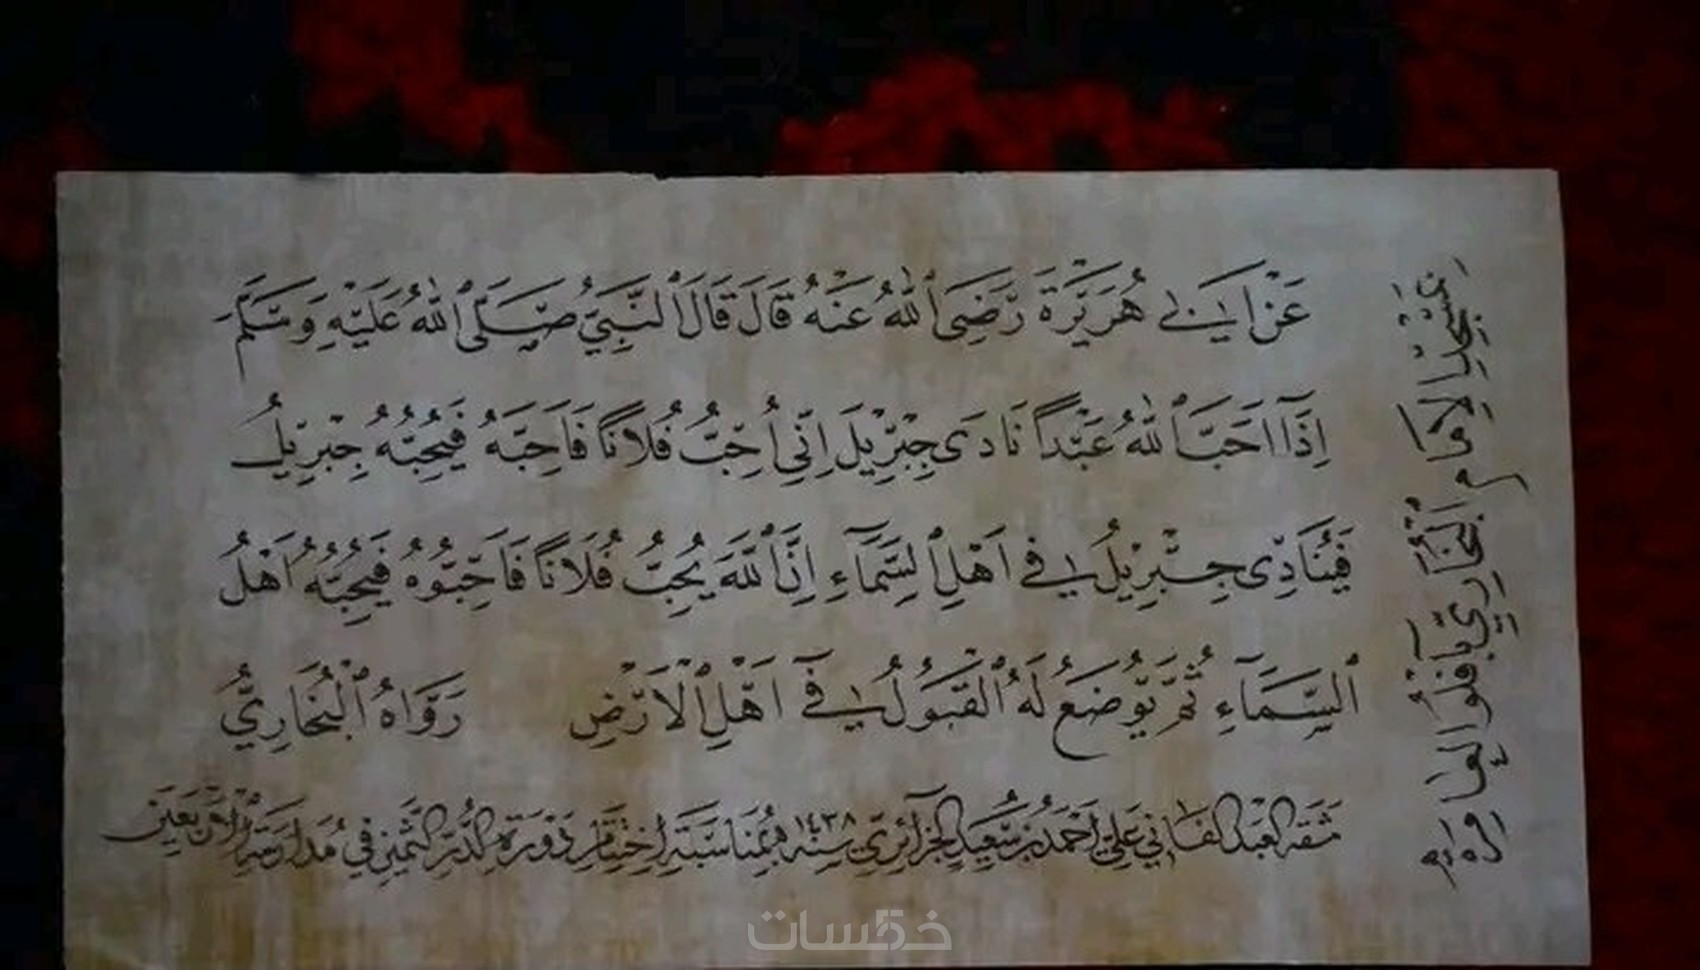 عَنْ اَبِي هُرَيْرَةَ رَضِيَ ٱللّٰهُ عَنْهُ قَالَ قَالَ ٱلنَّبِيُّ صَلَّى ٱللّٰهُ عَلَيْهِ وَسَلَّمَ
اِذَآ اَحَبَّ ٱللّٰهُ عَبْدًا نَادَى جِبْرِيلَ اِنِّي اُحِبُّ فُلَانًا فَاَحِبَّهُ فَيُحِبُّهُ جِبْرِيلُ
فَيُنَادِى جِبْرِيلُ فِي اَهْلِ ٱلسَّمَآءِ اِنَّ ٱللّٰهَ يُحِبُّ فُلَانًا فَاَحِبُّوهُ فَيُحِبُّهُ اَهْلُ
ٱلسَّمَآءِ ثُمَّ يُوضَعُ لَهُ ٱلْقَبُولُ فِي اَهْلِ ٱلْاَرْضِ رَوَاهُ ٱلْبُخَارِيُّ
العَبْدُ الفَانِي عَلِي اَحْمَد بن سَعِيد الجَزَآئِرِي سَنَة ١٤٣٨ بِمُنَاسَبَةِ اِخْتِتَامِ دَوْرَةِ الدُّرِّ الثَّمِينِ فِي
الاِمَام البُخَارِيّ
خمسات